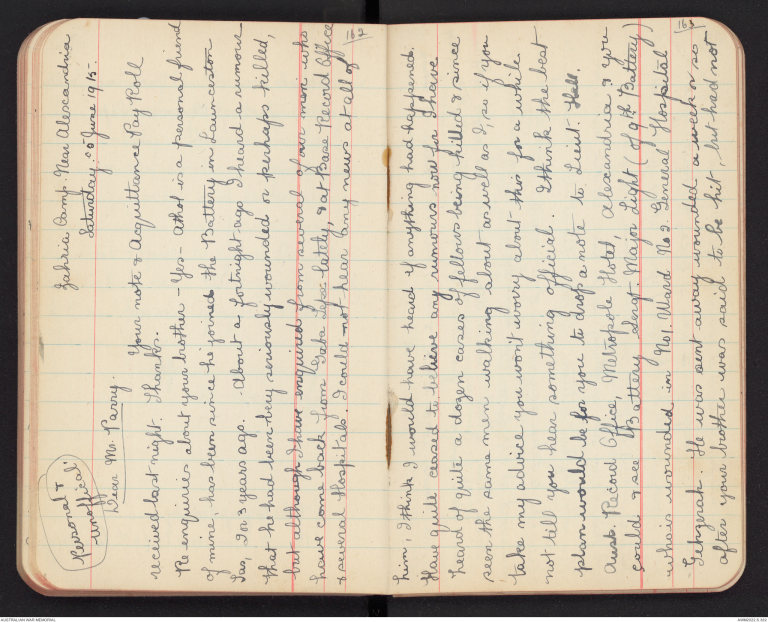 Zahria Camp Near Alexandria
Saturday 5 June 1915-
Personal &
unofficial.
Dear Mr. Parry.
Your note & Acquittance Pay Roll
received last night. Thanks.
Re enquiries about your brother - Yes - Athol is a personal friend
of mine & has been since he joined the Battery in Launceston
Tas, 2 or 3 years ago. About a fortnight ago I heard a rumour
that he had been very seriously wounded or perhaps killed,
but although I have enquired from several of our men who
have come back from Gaba Tepe lately, & at Base Record Office
& several Hospitals. I could not hear any news at all of
him, I think I would have heard if anything had happened.
Have quite ceased to believe any rumours now for I have
heard of quite a dozen cases of fellows being killed & since
seen the same men walking about as well as I, so if you
take my advice you won't worry about this for a while
not till you hear something official. I think the best
plan would be for you to drop a note to Lieut. Hall.
Aust. Record Office, Metropole Hotel, Alexandria & you
could & see Battery Sergt. Major Light (of 9th Battery)
who is wounded in No 1. Ward No 2 General Hospital
Gehzerah. He was sent away wounded a week or so
after your brother was said to be hit, but had not
AUSTRALIAN WAR MEMORIAL